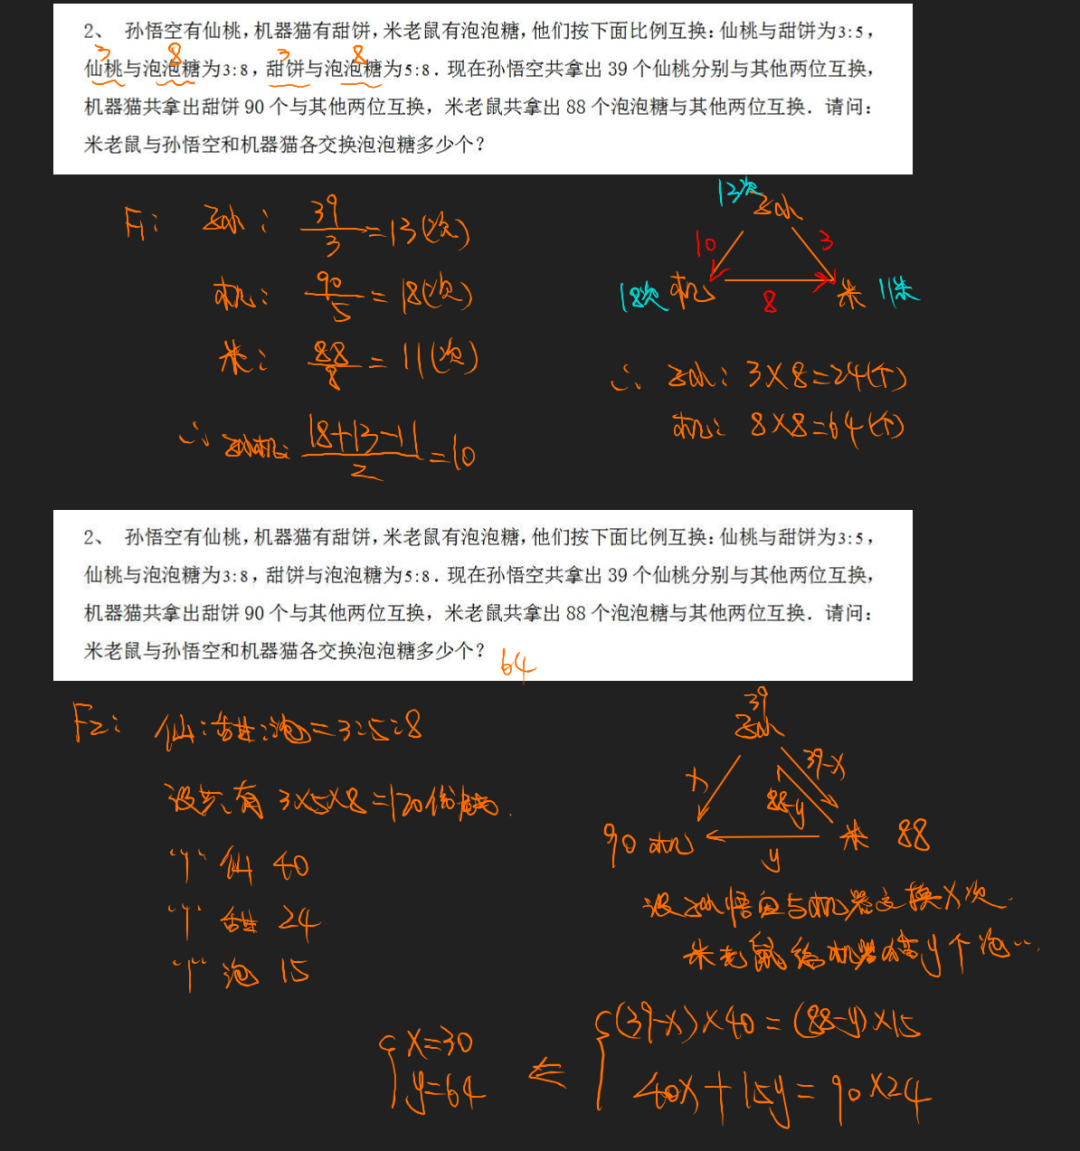 2、 孙悟空有仙桃，机器猫有甜饼，米老鼠有泡泡糖，他们按下面比例互换：仙桃与甜饼为3:5，
3 8 3 8
仙桃与泡泡糖为3:8，甜饼与泡泡糖为5:8．现在孙悟空共拿出 39 个仙桃分别与其他两位互换，
机器猫共拿出甜饼 90 个与其他两位互换，米老鼠共拿出 88 个泡泡糖与其他两位互换．请问：
米老鼠与孙悟空和机器猫各交换泡泡糖多少个？
F1: 孙: 39/3=13(次)
机: 90/5=18(次)
米: 88/8=11(次)
∴ 孙机: (18+13-11)/2=10
13次 孙
10 3
18次 机 8 米 11次
∴ 孙: 3×8=24(个)
机: 8×8=64(个)
2、 孙悟空有仙桃，机器猫有甜饼，米老鼠有泡泡糖，他们按下面比例互换：仙桃与甜饼为3:5，
仙桃与泡泡糖为3:8，甜饼与泡泡糖为5:8．现在孙悟空共拿出 39 个仙桃分别与其他两位互换，
机器猫共拿出甜饼 90 个与其他两位互换，米老鼠共拿出 88 个泡泡糖与其他两位互换．请问：
米老鼠与孙悟空和机器猫各交换泡泡糖多少个？ 64
F2: 仙:甜:泡=3:5:8
设共有 3×5×8=120份
"1" 仙 40
"1" 甜 24
"1" 泡 15
39
孙
x 39-x
88-y
90 机 y 米 88
设孙悟空与机器交换x次.
米老鼠给机器猫y个泡…
(39-x)×40=(88-y)×15
40x+15y=90×24
x=30
y=64